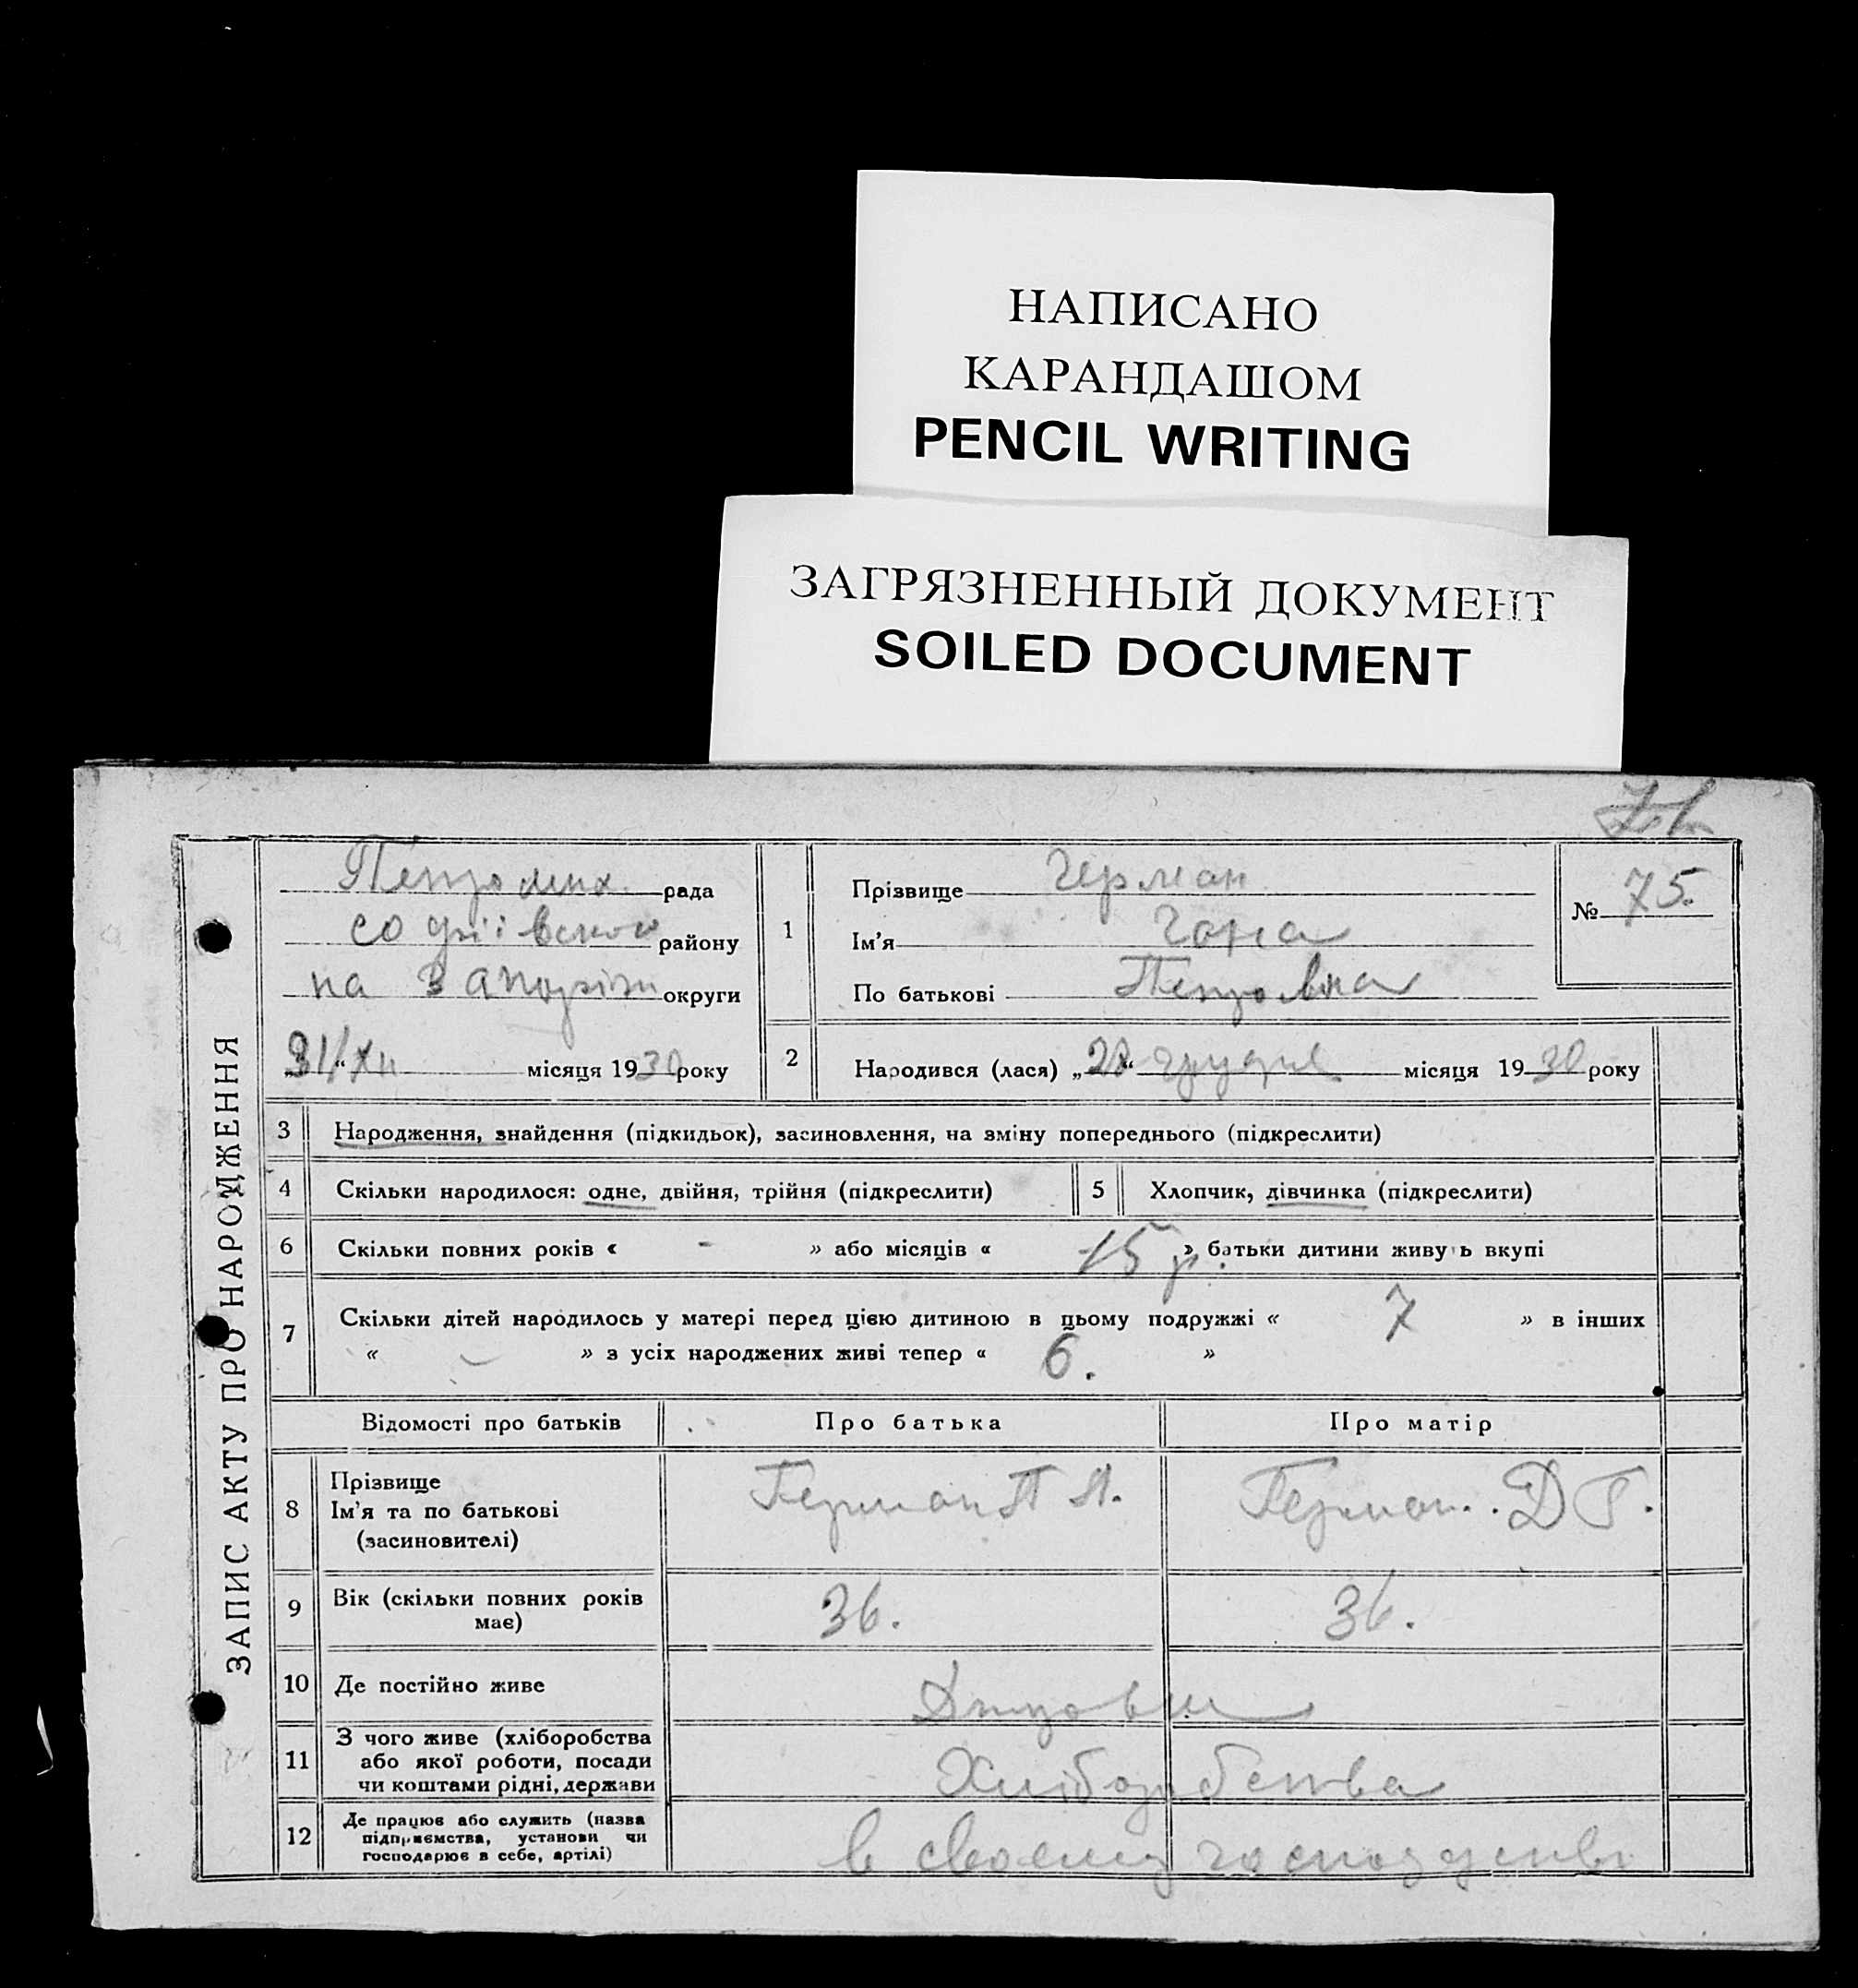 НАПИСАНО
КАРАНДАШОМ
PENCIL WRITING
ЗАГРЯЗНЕННЫЙ ДОКУМЕНТ
SOILED DOCUMENT
ЗАПИС АКТУ ПРО НАРОДЖЕННЯ
рада
району
на Запоріжж округи
31/XII місяця 1930 року
1
Прізвище Герман
Ім'я
По батькові Петровна
№ 75.
2
Народився (лася) „28“ грудня місяця 1930 року
3 Народження, знайдення (підкидьок), засиновлення, на зміну попереднього (підкреслити)
4 Скільки народилося: одне, двійня, трійня (підкреслити)
5 Хлопчик, дівчинка (підкреслити)
6 Скільки повних років « - » або місяців « 15 р. » батьки дитини живуть вкупі
7 Скільки дітей народилось у матері перед цією дитиною в цьому подружжі « 7 » в інших
« - » з усіх народжених живі тепер « 6. »
Відомості про батьків
Про батька
Про матір
8
Прізвище
Ім'я та по батькові
(засиновителі)
Герман П А.
Герман. Д Г.
9
Вік (скільки повних років
має)
36.
36.
10 Де постійно живе
11
З чого живе (хліборобства
або якої роботи, посади
чи коштами рідні, держави
Хліборобства
12
Де працює або служить (назва
підприємства, установи чи
господарює в себе, артілі)
в своему господарстві